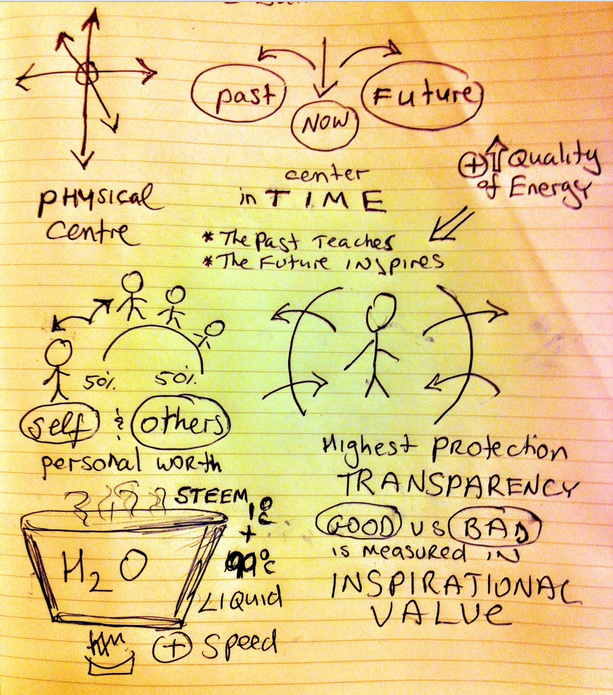 past
NOW
Future
center
in TIME
PHYSICAL
Centre
+ Quality
of Energy
* The Past Teaches
* The Future INSPIRES
50% 50%
self & others
personal worth
Highest Protection
TRANSPARENCY
GOOD VS BAD
is measured IN
INSPIRATIONAL
VALUE
STEEM
1°C
+
99°C
LIQUID
H2O
+ Speed